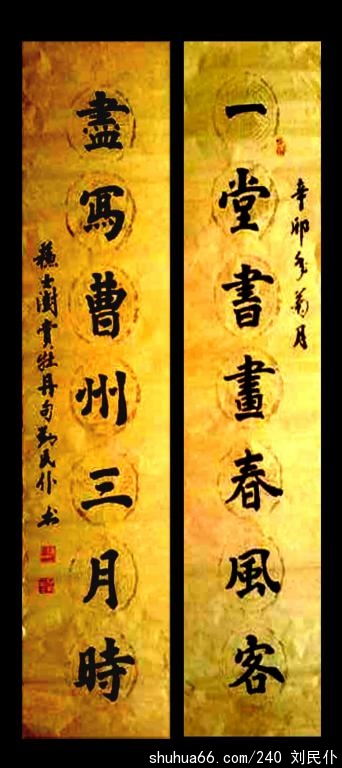 一堂書畫春風客
辛卯年菊月
盡寫曹州三月時
蘇士澍賞牡丹句劉民仆书
shuhua66.com/240 刘民仆